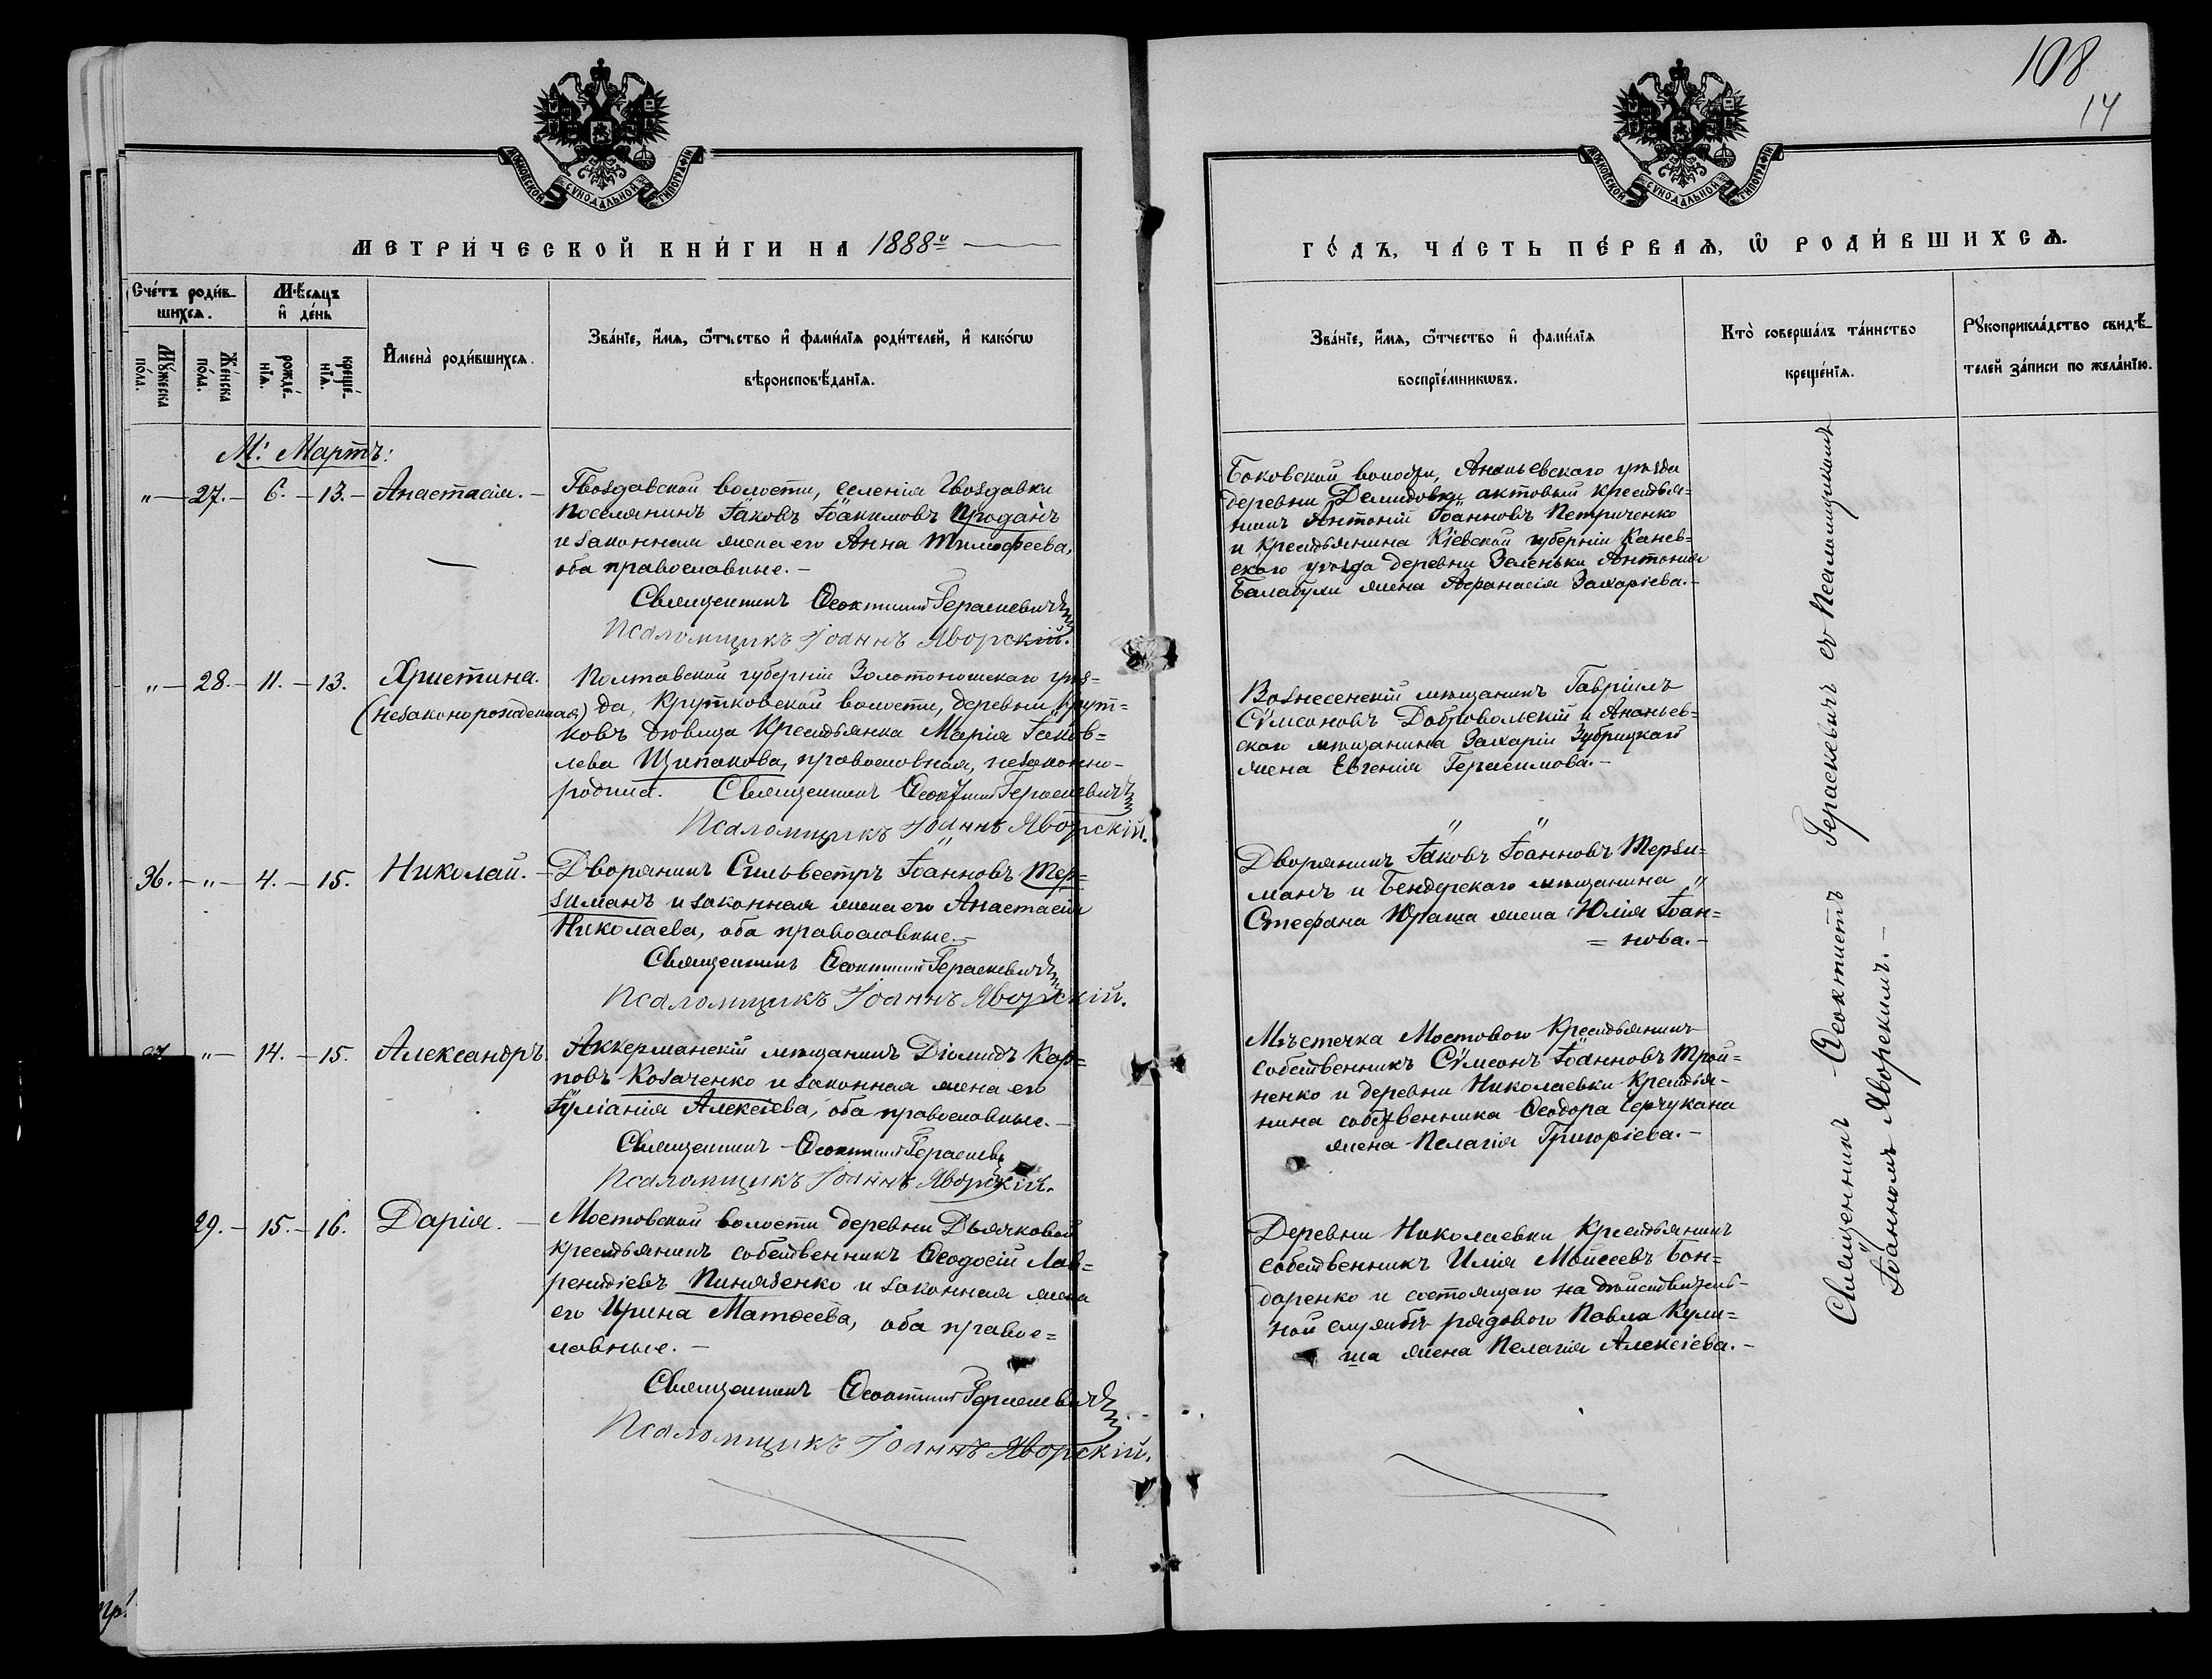 108
14
МОСКОВСКОЙ СѴНОДАЛЬНОЙ ТИПОГРАФІИ
МОСКОВСКОЙ СѴНОДАЛЬНОЙ ТИПОГРАФІИ
МЕТРИ́ЧЕСКОЙ КНИ́ГИ НА 1888й
ГО́ДЪ, ЧА́СТЬ ПЕ́РВАѦ, Ѡ РОДИ́ВШИХСѦ.
Сче́тъ роди́в-
шихсѧ.
Мꙋ́жеска по́ла.
Же́нска по́ла.
Мѣ́сѧцъ и де́нь
рожде́-нїѧ.
креще́-нїѧ.
Имена̀ роди́вшихсѧ.
Зва́нїе, и́мѧ, ѻ́тчество и фами́лїѧ роди́телей, и како́гѡ
вѣроисповѣ́данїѧ.
Зва́нїе, и́мѧ, ѻ́тчество и фами́лїѧ
воспрїе́мникѡвъ.
Кто̀ соверша́лъ та́инство
креще́нїѧ.
Рꙋкоприкла́дство свидѣ́-
телей за́писи по жела́нїю.
М: Мартъ:
" — 27. — 6. — 13. — Анастасія. —
Гвоздавской волости, селенія Гвоздавки
поселянинъ Іаковъ Іоакимовъ Проданъ
и законная жена его Анна Тимофеева,
оба православные. —
Священникъ Ѳеоктистъ Гераскевичъ
Псаломщикъ Іоаннъ Яворскій.
Боковской волости, Ананьевскаго уѣзда
деревни Демидовки актовый крестья=
нинъ Антоній Іоанновъ Петриченко
и крестьянина Кіевской губерніи Канев=
скаго уѣзда деревни Зеленьки Антонія
Балабухи жена Афанасія Захаріева. —
" — 28. — 11. — 13. Христина.
(незаконорожденная)
Полтавской губерніи Золотоношскаго уѣз=
да, Крутковской волости, деревни Крут=
ковъ дѣвица крестьянка Марія Іаков=
лева Щипакова, православная, незаконно-
родила. Священникъ Ѳеоктистъ Гераскевичъ
Псаломщикъ Іоаннъ Яворскій.
Вознесенскій мѣщанинъ Гавріилъ
Сѵмеоновъ Добровольскій и Ананьев=
скаго мѣщанина Захаріи Зубрицкаго
жена Евгенія Герасимова. —
36. — " — 4. — 15. Николай. —
Дворянинъ Сильвестръ Іоанновъ Тер=
зиманъ и законная жена его Анастасія
Николаева, оба православные. —
Священникъ Ѳеоктистъ Гераскевичъ
Псаломщикъ Іоаннъ Яворскій.
Дворянинъ Іаковъ Іоанновъ Терзи=
манъ и Бендерскаго мѣщанина
Стефана Юраша жена Юлія Іоан=
= нова. —
" — 14. — 15. Александръ.
Аккерманскій мѣщанинъ Діомидъ Кар=
повъ Козаченко и законная жена его
Іуліанія Алексіева, оба православные. —
Священникъ Ѳеоктистъ Гераскев
Псаломщикъ Іоаннъ Яворскій.
Мѣстечка Мостового крестьянинъ
собственникъ Сѵмеонъ Іоанновъ Трой=
ненко и деревни Николаевки крестья-
нина собственника Ѳеодора Черчукана
жена Пелагія Григоріева. —
29. — 15. — 16. Дарія. —
Мостовской волости деревни Дьячковой
крестьянинъ собственникъ Ѳеодосій Лав=
рентіевъ Пинязенко и законная жена
его Ирина Матѳеева, оба правос=
лавные. —
Священникъ Ѳеоктистъ Гераскевичъ
Псаломщикъ Іоаннъ Яворскій.
Деревни Николаевки крестьянинъ
собственникъ Илія Моисеевъ Бон=
даренко и состоящаго на дѣйствитель-
ной службѣ рядового Павла Кули=
ша жена Пелагія Алексіева. —
Священникъ Ѳеоктистъ Гераскевичъ съ Псаломщикомъ
Іоанномъ Яворскимъ. —